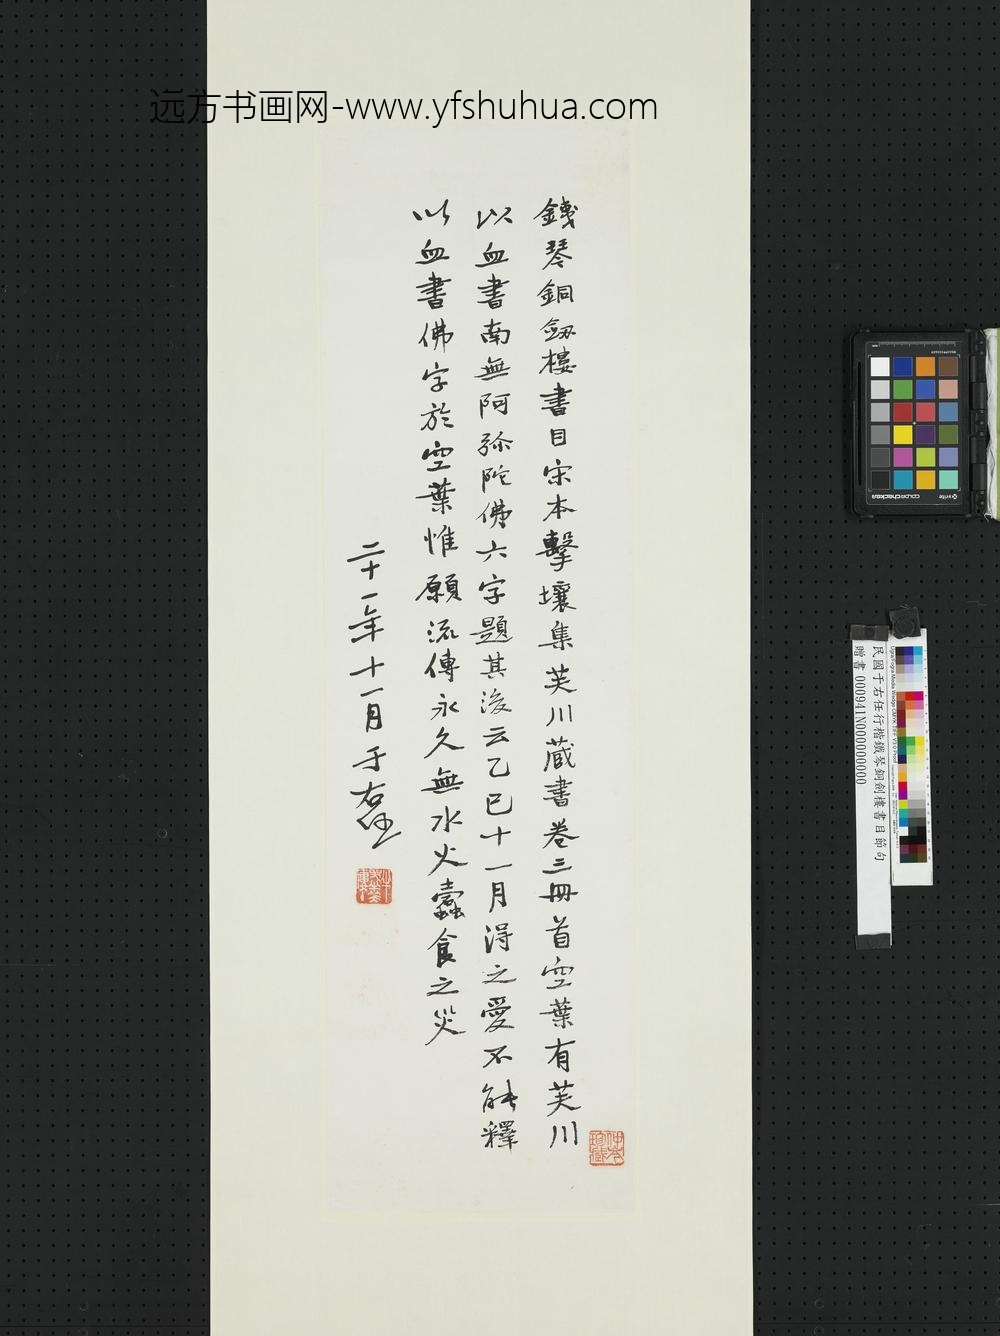 远方书画网-www.yfshuhua.com
銕琴銅劎樓書目宋本擊壤集芙川蔵書卷三冊首空葉有芙川
以血書南無阿弥陀佛六字題其後云乙巳十一月得之愛不能釋
以血書佛字於空葉惟願流傳永久無水火蠹食之災
二十一年十一月于右任
民國于右任行楷鐵琴銅劍樓書目節句
贈書 000941N000000000
colorchecker
x-rite